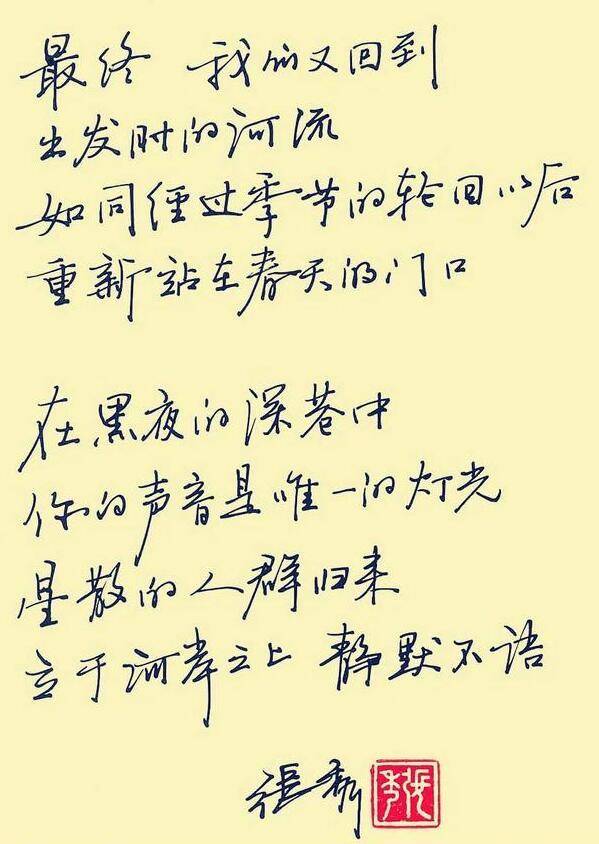 最终 我们又回到
出发时的河流
如同经过季节的轮回以后
重新站在春天的门口
在黑夜的深巷中
你的声音是唯一的灯光
星散的人群归来
立于河岸之上 静默不语
张